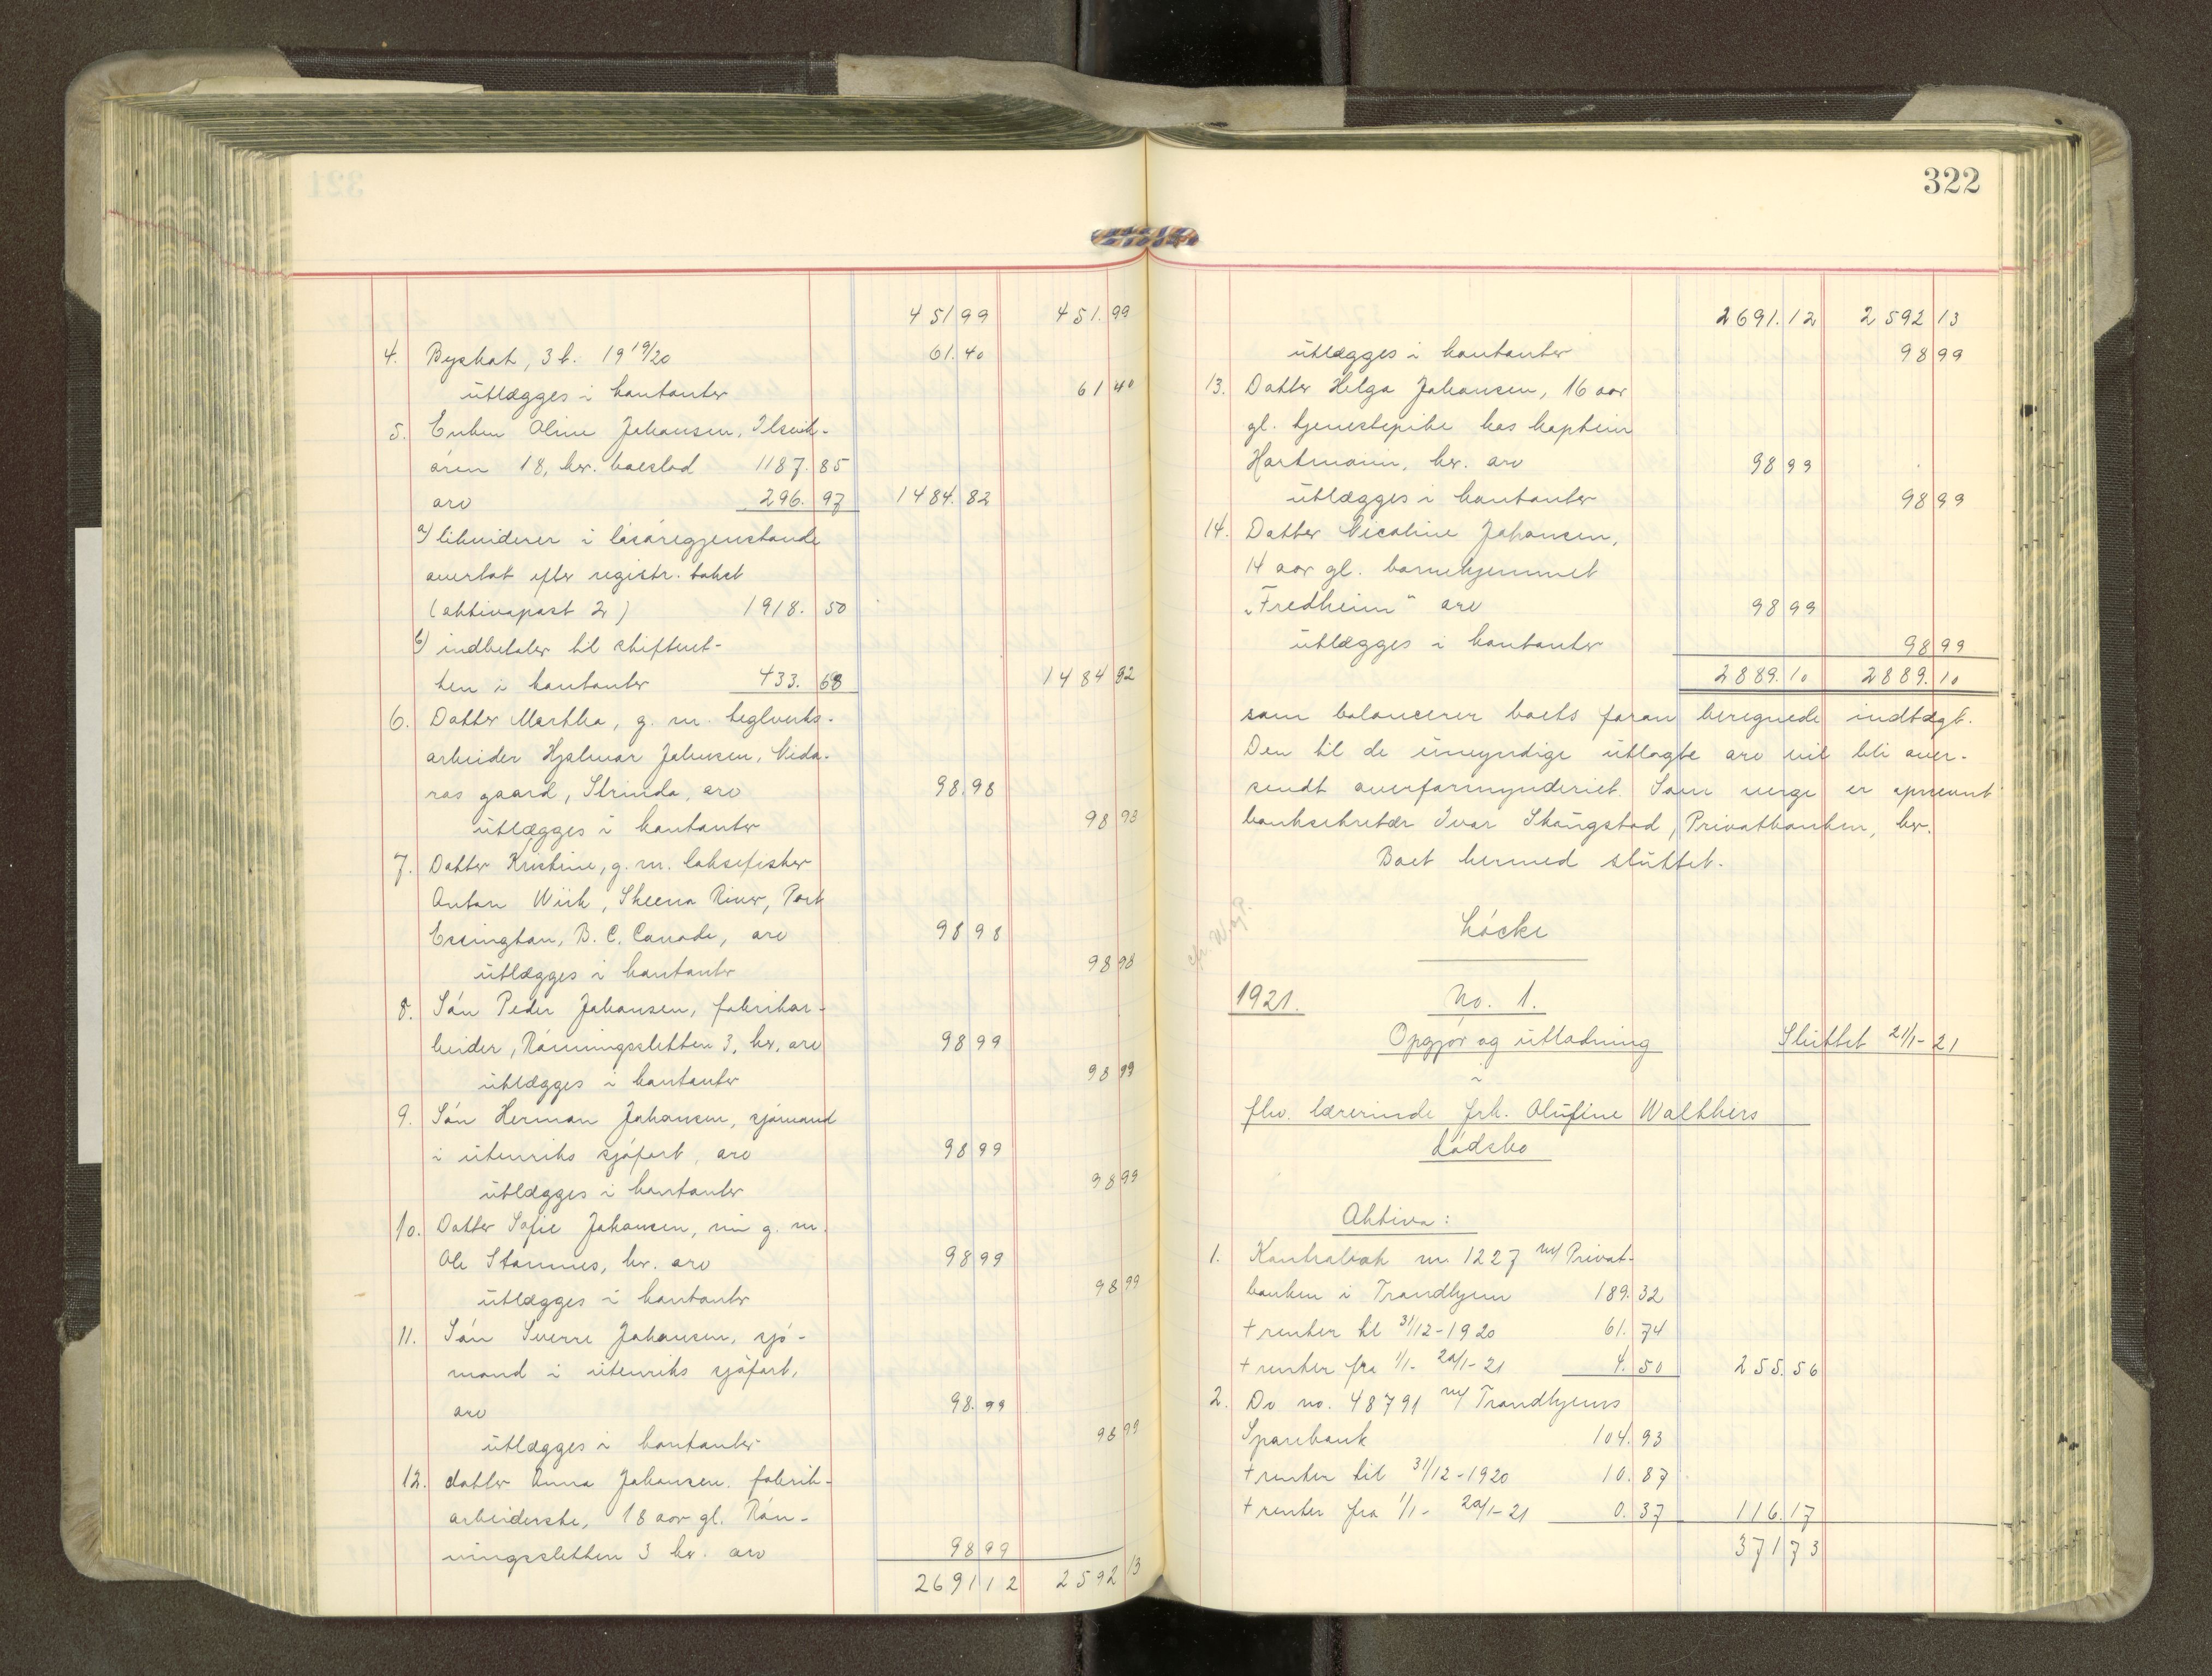 321
451 99 451. 99
4. Byskat, 3 t. 19 19/20 61. 40
utlægges i kontanter 61 40
5. Enken Oline Johansen, Ilsvik-
øren 18, her. boeslod 1187. 85
arv 296. 97 1484. 82
a) likviderer i løsøregjenstande
overtat efter registr. takst
(aktivapost 2) 1918. 50
b) indbetaler til skifteret-
ten i kontanter 433. 68 1484 82
6. Datter Martha, g. m. teglverks-
arbeider Hjalmar Johnsen, Nida-
ros gaard, Strinda, arv 98. 98
utlægges i kontanter 98 98
7. Datter Kristine, g. m. laksefisker
Anton Wiik, Skeena River, Port
Essington, B. C. Canada, arv 98 98
utlægges i kontanter 98 98
8. Søn Peder Johansen, fabrikar-
beider, Rønningssletten 3, her, arv 98 99
utlægges i kontanter 98 99
9. Søn Herman Johansen, sjømand
i utenriks sjøfart, arv 98 99
utlægges i kontanter 98 99
10. Datter Sofie Johansen, nu g. m.
Ole Stamnes, her. arv 98 99
utlægges i kontanter 98 99
11. Søn Sverre Johansen, sjø-
mand i utenriks sjøfart,
arv 98. 99
utlægges i kontanter 98 99
12. datter Anna Johansen. fabrik-
arbeiderske, 18 aar gl. Røn-
ningssletten 3 her. arv 98 99
2691 12 2592 13
322
2691. 12 2592 13
utlægges i kontanter 98 99
13. Datter Helga Johansen, 16 aar
gl. tjenestepike hos kaptein
Hartmann, her. arv 98 99
utlægges i kontanter 98 99
14. Datter Nicoline Johansen,
14 aar gl. barnehjemmet
"Fredheim" arv 98 99
utlægges i kontanter 98 99
2889. 10 2889. 10
som balancerer boets foran beregnede indtægt.
Den til de umyndige utlagte arv vil bli over-
sendt overformynderiet. Som verge er opnævnt
banksekretær Ivar Skaugstad, Privatbanken, her.
Boet hermed sluttet.
Løcke
1921. No. 1.
Opgjør og utlodning Sluttet 21/1-21
i
fhv. lærerinde frk. Olufine Walthers
dødsbo
Aktiva:
1. Kontrabok nr. 1227 m/ Privat-
banken i Trondhjem 189. 32
+ renter til 31/12-1920 61. 74
+ renter fra 1/1- 20/1-21 4. 50 255. 56
2. Do no. 48791 m/ Trondhjems
Sparebank 104. 93
+ renter til 31/12-1920 10. 87
+ renter fra 1/1- 20/1-21 0. 37 116. 17
371 73